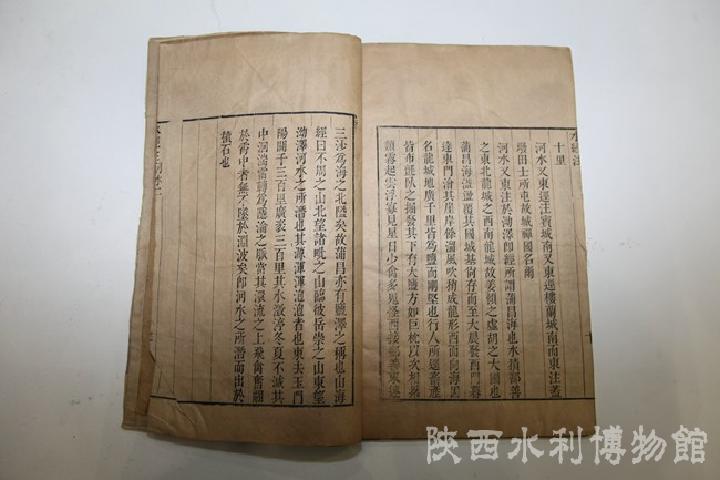 十里
河水又東逕注賓城南又東逕樓蘭城南而東注蓋
墢田士所屯故城禪國名爾
河水又東注於泑澤卽經所謂蒲昌海也水積鄯善
之東北龍城之西南龍城故姜賴之虛胡之大國也
蒲昌海溢盪覆其國城基尚存而至大晨發西門暮
達東門澮其崖岸餘溜風吹稍成龍形西面向海因
名龍城地廣千里皆爲鹽而剛堅也行人所逕畜產
皆布氈臥之掘發其下有大鹽方如巨枕以次相累
類霧起雲浮寡見星日少禽多鬼怪西接鄯善東連
三沙爲海之北隘矣故蒲昌亦有鹽澤之稱也山海
經曰不周之山北望諸毗之山臨彼岳崇之山東望
泑澤河水之所潛也其源渾渾泡泡者也東去玉門
陽關千三百里廣袤三百里其水澂渟冬夏不減其
中洄湍電轉爲隱淪之脈當其澴流之上飛禽奮翮
於霄中者無不墜於淵波矣卽河水之所潛而出於
積石也
陝西水利博物館